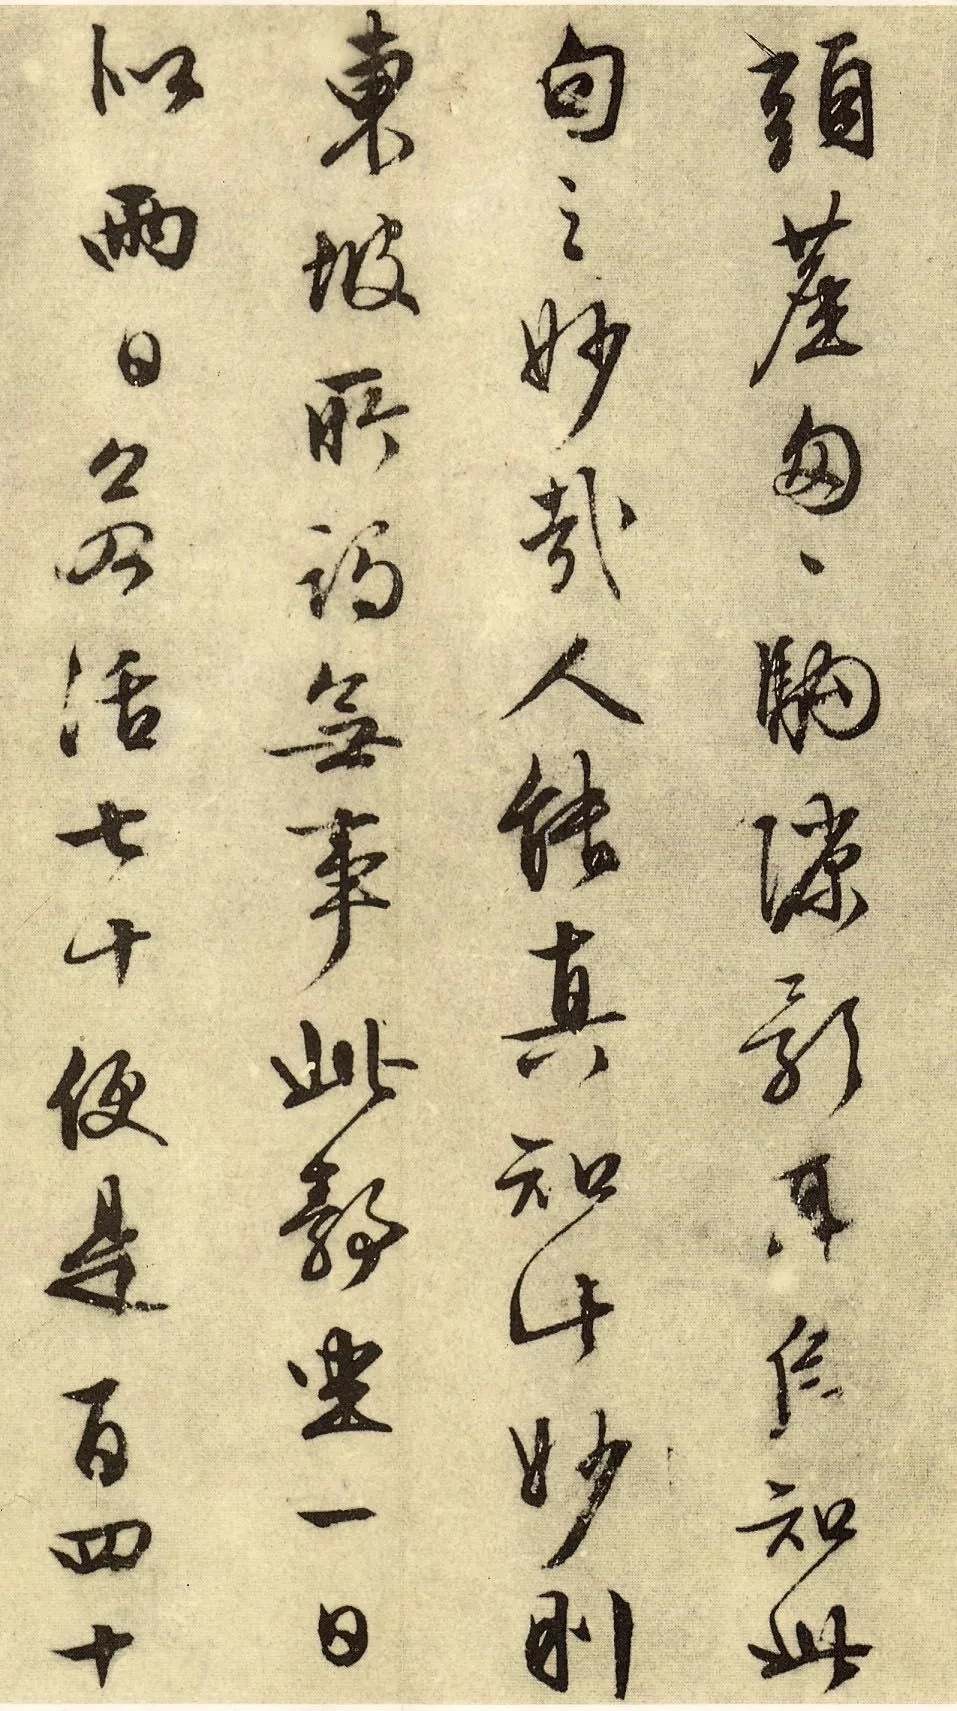 頭塵匆、駒隙影耳信知此
句之妙哉人能真知此妙則
東坡所謂無事此靜坐一日
似兩日若活七十便是百四十